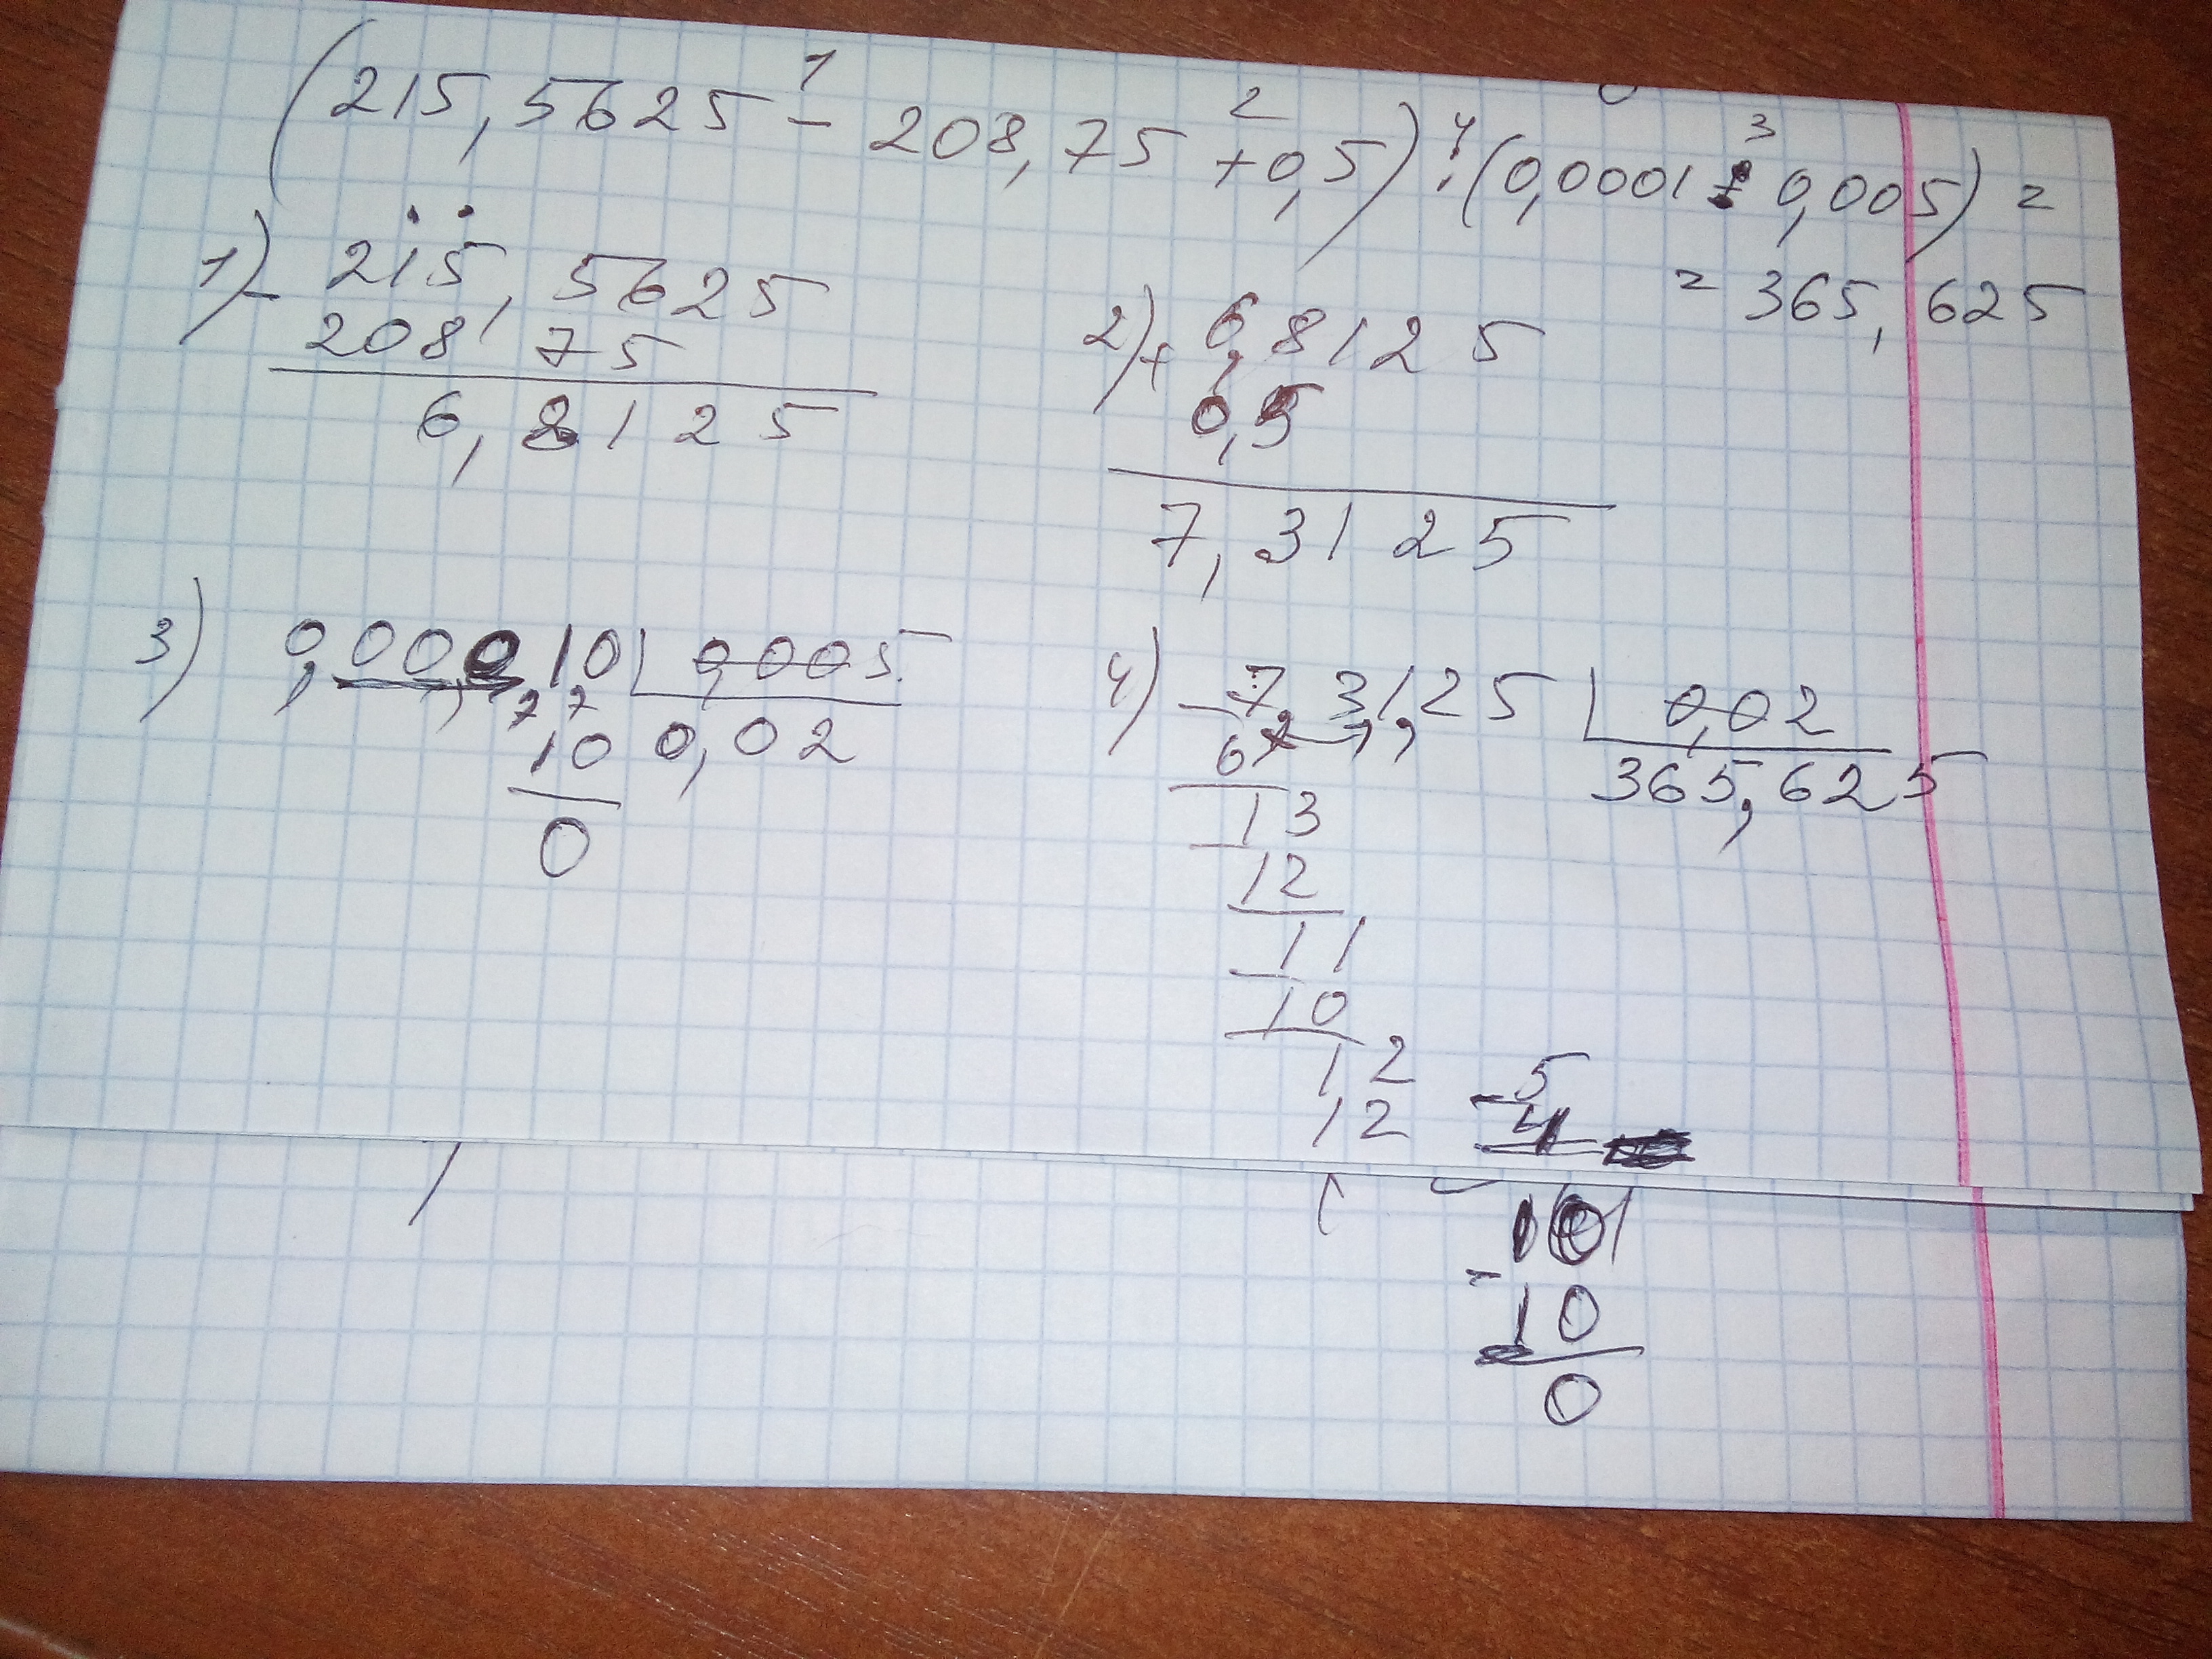 (215,5625 - 208,75 + 0,5) : (0,0001 : 0,005) =
1 2 4 3
= 365,625
1) - 215,5625
208,75
6,8125
2) + 6,8125
0,5
7,3125
3) 0,00010 | 0,005
10 0,02
0
4) - 7,3125 | 0,02
6 365,625
- 13
12
- 11
10
12
12
- 5
4
- 10
10
0